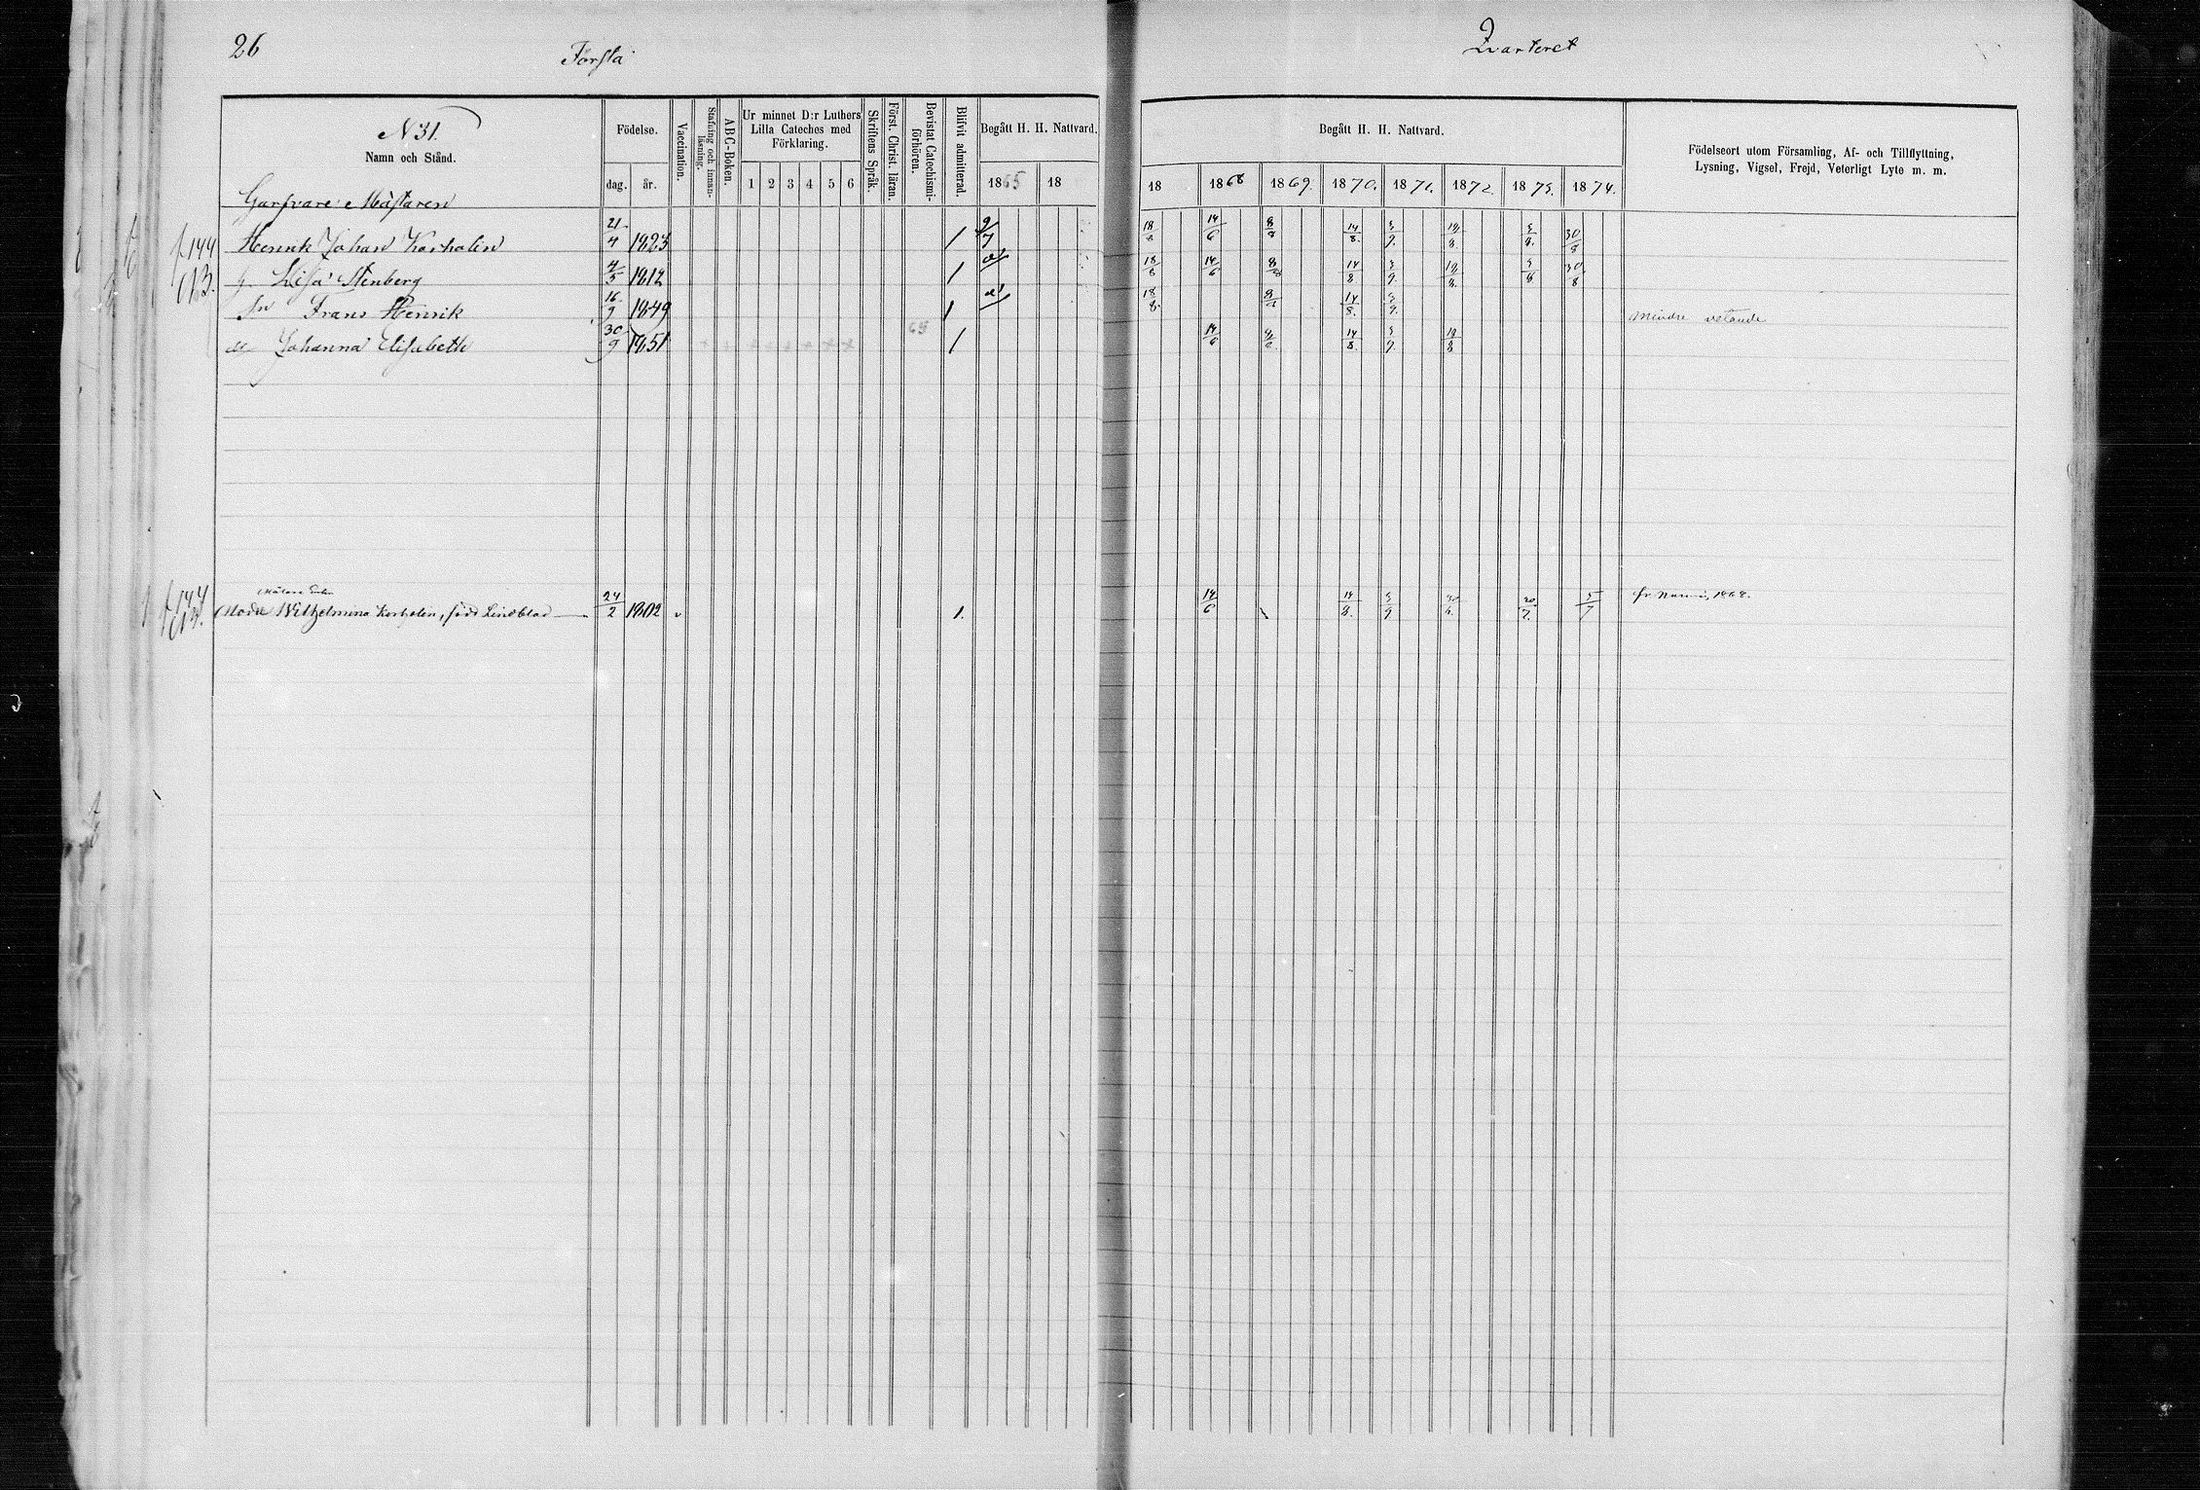 26
Första
Qvarteret
N 31.
Namn och Stånd.
Födelse.
dag. år.
Vaccination.
Stafning och innanläsning.
ABC-Boken.
Ur minnet D:r Luthers
Lilla Cateches med
Förklaring.
1 2 3 4 5 6
Skriftens Språk.
Först. Christ. läran.
Bevistat Catechismi-
förhören.
Blifvit admitterad.
Begått H. H. Nattvard.
1865 18
Begått H. H. Nattvard.
18 1868 1869. 1870. 1871. 1872. 1873. 1874.
Födelseort utom Församling, Af- och Tillflyttning,
Lysning, Vigsel, Frejd, Veterligt Lyte m. m.
Garfvare Mästaren
f 144 Henrik Johan Korholin 21/4 1823 1 9/7 18/8 14/6 8/8 14/8. 3/9. 18/8. 3/8. 30/8
Lisa Stenberg 4/5 1812 1 18/8 14/6 8/8 14/8 3/9. 18/8. 3/8 30/8
Sn Frans Henrik 16/9 1849 1 18/8. 8/8 14/8. 3/9. Mindre vetande
Johanna Elisabeth 30/9 1851 65 1 14/6 14/8. 3/9. 18/8
Enkan
Wilhelmina Korholin, född Lindblad 24/2 1802 v 1. 14/6 14/8. 3/9 5/7 1868.